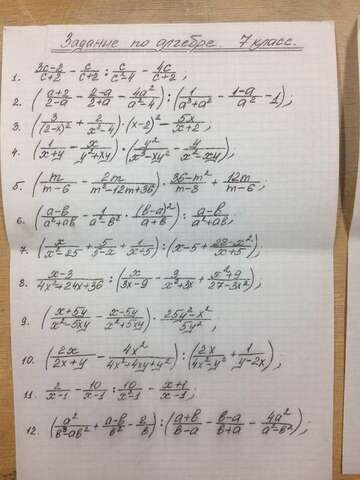 Задание по алгебре. 7 класс.
1. (3c-2)/(c+2) - c/(c+2) : c/(c²-4) - 4c/(c+2) ;
2. ((a+2)/(2-a) - (2-a)/(2+a) - 4a²/(a²-4)) : (1/(a³+a²) - (1-a)/a² - 1) ;
3. (3/(2-x)² + 2/(x²-4)) · (x-2)² - 5x/(x+2) ;
4. (1/(x+y) - x/(y²+xy)) · (y²/(x³-xy²) - y/(x²-xy)) ;
5. (m/(m-6) - 2m/(m²-12m+36)) · (36-m²)/(m-8) + 12m/(m-6) ;
6. ((a-b)/(a²+ab) - 1/(a²-b²) · (b-a)²/(a+b)) : (a-b)/(a²+ab) ;
7. (x/(x²-25) + 5/(5-x) + 1/(x-5)) : (x-5 + (28-x²)/(x+5)) ;
8. (x-3)/(4x²+24x+36) : (x/(3x-9) - 3/(x²+3x) + (x²+9)/(27-3x²)) ;
9. ((x+5y)/(x²-5xy) - (x-5y)/(x²+5xy)) · (25y²-x²)/(5y²) ;
10. (2x/(2x+y) - 4x²/(4x²+4xy+y²)) : (2x/(4x²-y²) + 1/(y-2x)) ;
11. 2/(x-1) - 10/(x-1) : 10/(x²-1) - (x+1)/(x-1) ;
12. (a²/(b³-ab²) + (a-b)/b² - 2/b) : ((a+b)/(b-a) - (b-a)/(b+a) - 4a²/(a²-b²)) ;